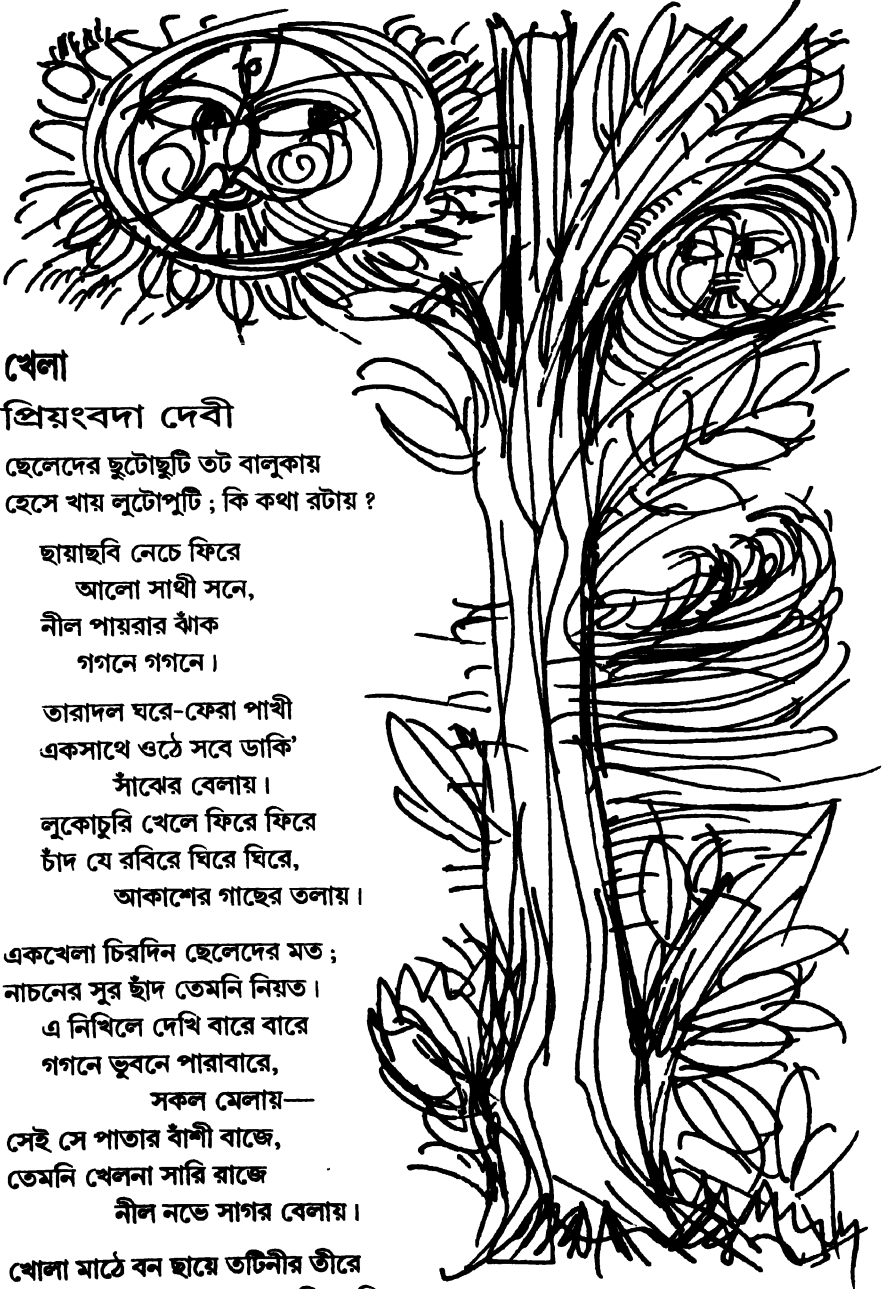 খেলা
প্রিয়ংবদা দেবী
ছেলেদের ছুটোছুটি তট বালুকায়
হেসে খায় লুটোপুটি ; কি কথা রটায় ?
ছায়াছবি নেচে ফিরে
আলো সাথী সনে,
নীল পায়রার ঝাঁক
গগনে গগনে।
তারাদল ঘরে-ফেরা পাখী
একসাথে ওঠে সবে ডাকি’
সাঁঝের বেলায়।
লুকোচুরি খেলে ফিরে ফিরে
চাঁদ যে রবিরে ঘিরে ঘিরে,
আকাশের গাছের তলায়।
একখেলা চিরদিন ছেলেদের মত ;
নাচনের সুর ছাঁদ তেমনি নিয়ত।
এ নিখিলে দেখি বারে বারে
গগনে ভুবনে পারাবারে,
সকল মেলায়—
সেই সে পাতার বাঁশী বাজে,
তেমনি খেলনা সারি রাজে
নীল নভে সাগর বেলায়।
খোলা মাঠে বন ছায়ে তটিনীর তীরে